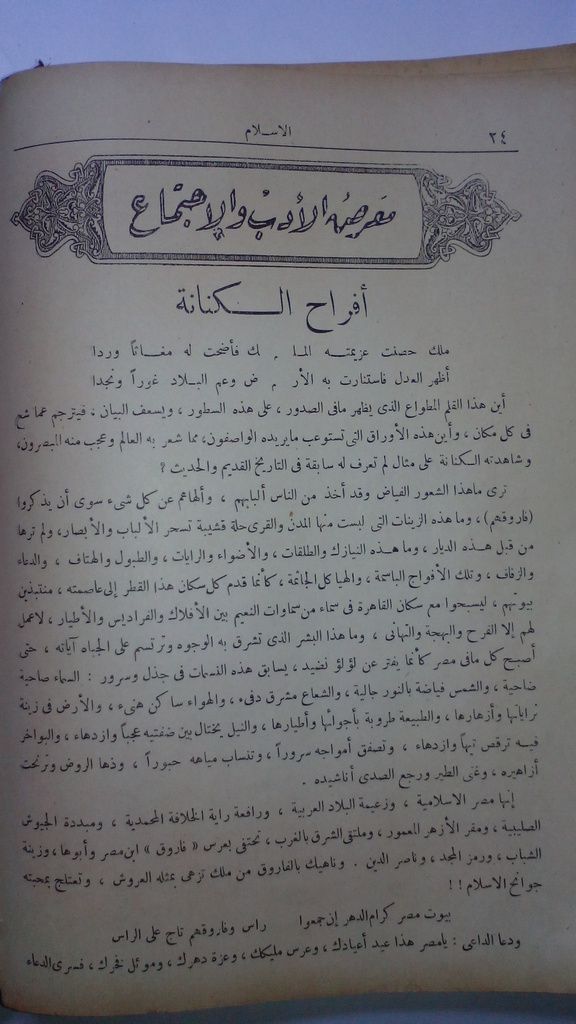 ٢٤
الاسلام
معرض الأدب والاجتماع
أفراح الكنانة
ملك حصنت عزيمته الما . لك فأضحت له مغانا وردا
أظهر العدل فاستنارت به الأر . ض وعم البلاد غوراً ونجدا
أين هذا القلم المطواع الذى يظهر مافى الصدور ، على هذه السطور ، ويسعف البيان ، فيترجم عما شع
فى كل مكان ، وأين هذه الأوراق التى تستوعب مايريده الواصفون، مما شعر به العالم وعجب منه المبصرون،
وشاهدته الكنانة على مثال لم تعرف له سابقة فى التاريخ القديم والحديث ؟
ترى ماهذا الشعور الفياض وقد أخذ من الناس ألبابهم ، وألهاهم عن كل شىء سوى أن يذكروا
(فاروقهم) ، وما هذه الزينات التى لبست منها المدن والقرى حلة قشيبة تسحر الألباب والأبصار، ولم ترها
من قبل هذه الديار ، وما هذه النيازك والطلقات ، والأضواء والرايات ، والطبول والهتاف ، والدعاء
والزفاف ، وتلك الأفواج الباسمة ، والهياكل الجائمة ، كأنما قدم كل سكان هذا القطر إلى عاصمته ، منتبذين
بيوتهم ، ليسبحوا مع سكان القاهرة فى سماء من سماوات النعيم بين الأفلاك والفراديس والأطيار ، لاعمل
لهم إلا الفرح والبهجة والتهانى ، وما هذا البشر الذى تشرق به الوجوه وترتسم على الجباه آياته ، حتى
أصبح كل مافى مصر كأنما يفتر عن لؤلؤ نضيد ، يسابق هذه النسمات فى جذل وسرور : السماء صاحية
ضاحية ، والشمس فياضة بالنور جالية ، والشعاع مشرق دفىء ، والهواء ساكن هنىء ، والأرض فى زينة
نراياتها وأزهارها ، والطبيعة طروبة بأجوائها وأطيارها ، والنيل يختال بين ضفتيه عجباً وازدهاء ، والبواخر
فيه ترقص تيهاً وازدهاء ، وتصفق أمواجه سروراً ، وتنساب مياهه حبوراً ، وذها الروض وترنحت
أزاهيره ، وغنى الطير ورجع الصدى أناشيده .
إنها مصر الاسلامية ، وزعيمة البلاد العربية ، ورافعة راية الخلافة المحمدية ، ومبددة الجيوش
الصليبية ، ومقر الأزهر المعمور ، وملتقى الشرق بالغرب ، تحتفى بعرس « فاروق » ابن مصر وأبوها، وزينة
الشباب ، ورمز المجد ، وناصر الدين . وناهيك بالفاروق من ملك تزهى بمثله العروش ، وتعتلج بمحبته
جوانح الاسلام ! !
بيوت مصر كرام الدهر إن جمعوا راس وفاروقهم تاج على الراس
ودعا الداعى : يامصر هذا عيد أعيادك ، وعرس مليكك ، وعزة دهرك ، وموئل فخرك ، فسرى الدعاء